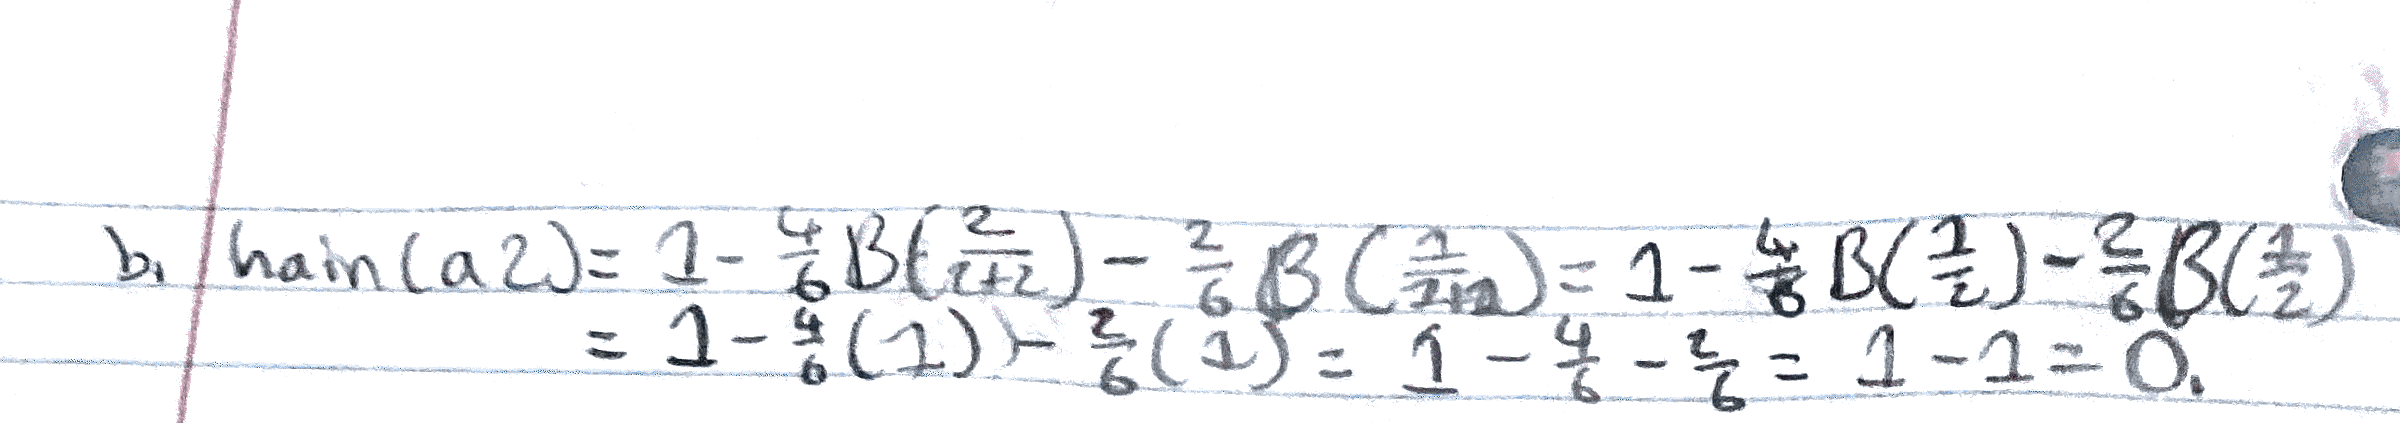 b. hain(a2) = 1 - 4/6 B(2/(2+2)) - 2/6 B(1/(1+1)) = 1 - 4/6 B(1/2) - 2/6 B(1/2)
= 1 - 4/6 (1) - 2/6 (1) = 1 - 4/6 - 2/6 = 1 - 1 = 0.